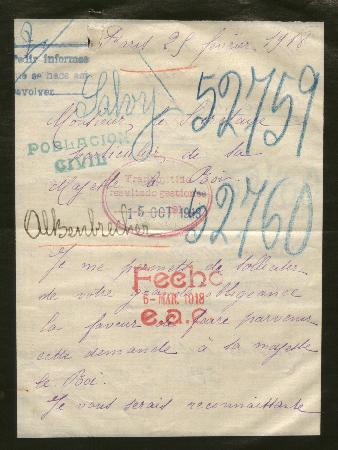 Paris 25 février 1918
Pedir informes
que se hace en
devolver
Salvy
52759
Monsieur le Secrétaire
POBLACION
CIVIL
particulier de sa
Majesté le Roi
Transmitido
resultado gestiones
15 OCT 1918
52760
Je me permets de solliciter
de votre grande
Fecha
6-MAR. 1918
e.a.c
la faveur de faire parvenir
cette demande à sa majesté
le Roi.
Je vous serais reconnaissante